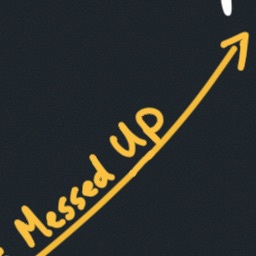 Messed Up